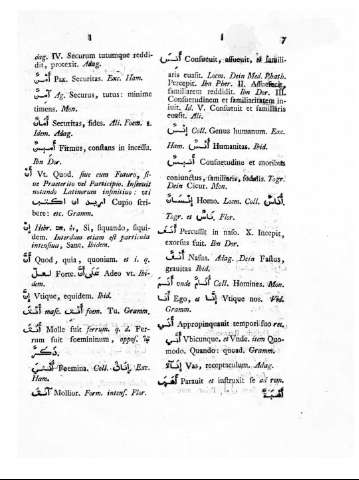 7
deg. IV. Securum tutumque reddi-
dit, protexit. Adag.
أَمْنٌ Pax. Securitas. Exc. Ham.
Ag. Securus, tutus: minime
timens. Mon.
أَمَانٌ Securitas, fides. Ali. Form. s.
Idem. Adag.
أَمِينٌ Firmus, constans in incessu.
Ibn Dor.
أَنْ Vt. Quod. sive cum Futuro, si-
ve Praeterito vel Participio. Inservit
notando Latinorum infinitivo: vti
اريد ان اكتب Cupio scri-
bere: etc. Gramm.
إِنْ Hebr. Si, siquando, siqui-
dem. Interdum etiam est particula
intensiua, Sane. Ibidem.
أَنَّ Quod, quia, quoniam. et i. q.
لعلّ Forte. Adeo vt. Ibi-
dem.
إِنَّ Vtique, equidem. Ibid.
أَنْتَ masc. أَنْتِ foem. Tu. Gramm.
أَنُثَ Molle fuit ferrum. q. d. Fer-
rum fuit foemininum, oppos. τῷ
ذَكَرٌ
أُنْثَى Foemina. Coll. إِنَاثٌ Exc.
Ham.
Mollior. Form. intens. Flor.
أَنِسَ Consueuit, assueuit, et famili-
aris euasit. Locm. Dein Med. Phath.
Percepit. Ibn Pher. II. Assuescit,
familiarem reddidit. Ibn Dor. III.
Consuetudinem et familiaritatem in-
iuit. Id. V. Consueuit et familiaris
euasit. Ali.
إِنْسٌ Coll. Genus humanum. Exc.
Ham. Humanitas. Ibid.
Consuetudine et moribus
coniunctus, familiaris, sodalis. Togr.
Dein Cicur. Mon.
إِنْسَانٌ Homo. Locm. Coll.
Togr. et نَاسٌ Flor.
أَنَفَ Percussit in naso. X. Incepit,
exorsus fuit. Ibn Dor.
أَنْفٌ Nasus. Adag. Dein Fastus,
grauitas Ibid.
أَنَامٌ vnde Coll. Homines. Mon.
أَنَا Ego, Vtique nos. Vid.
Gramm.
أَنَى Appropinquauit tempori suo res.
أَنَّى Vbicunque. et Vnde. item Quo-
modo. Quando: quoad. Gramm.
إِنَاءٌ Vas, receptaculum. Adag.
أَهَّبَ Parauit et instruxit se ad rem.
أُهْبَةٌ